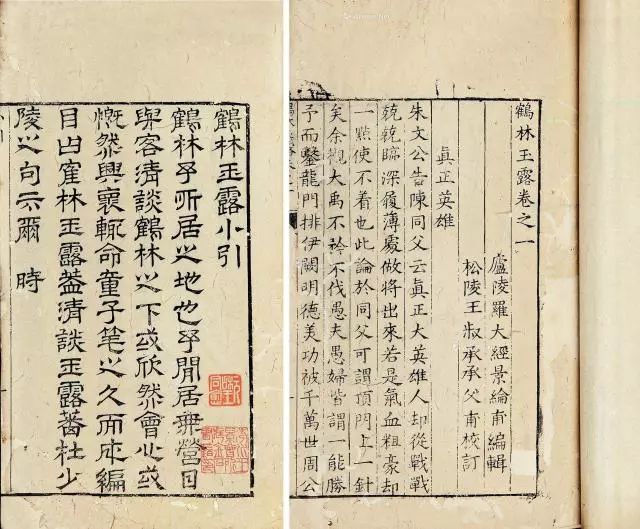 鶴林玉露小引
鶴林予所居之地也予閒居無營日
與客清談鶴林之下或欣然會心或
慨然興褱輒命童子筆之久而成編
目曰鶴林玉露蓋清談玉露蕃杜少
陵之句云爾 時
鶴林玉露卷之一
廬陵羅大經景綸甫編輯
松陵王叔承承父甫校訂
眞正英雄
朱文公告陳同父云眞正大英雄人却從戰戰
兢兢臨深履薄處做將出來若是氣血粗豪却
一點使不着也此論於同父可謂頂門上一針
矣余觀大禹不矜不伐愚夫愚婦皆謂一能勝
予而鑿龍門排伊闕明德美功被千萬世周公